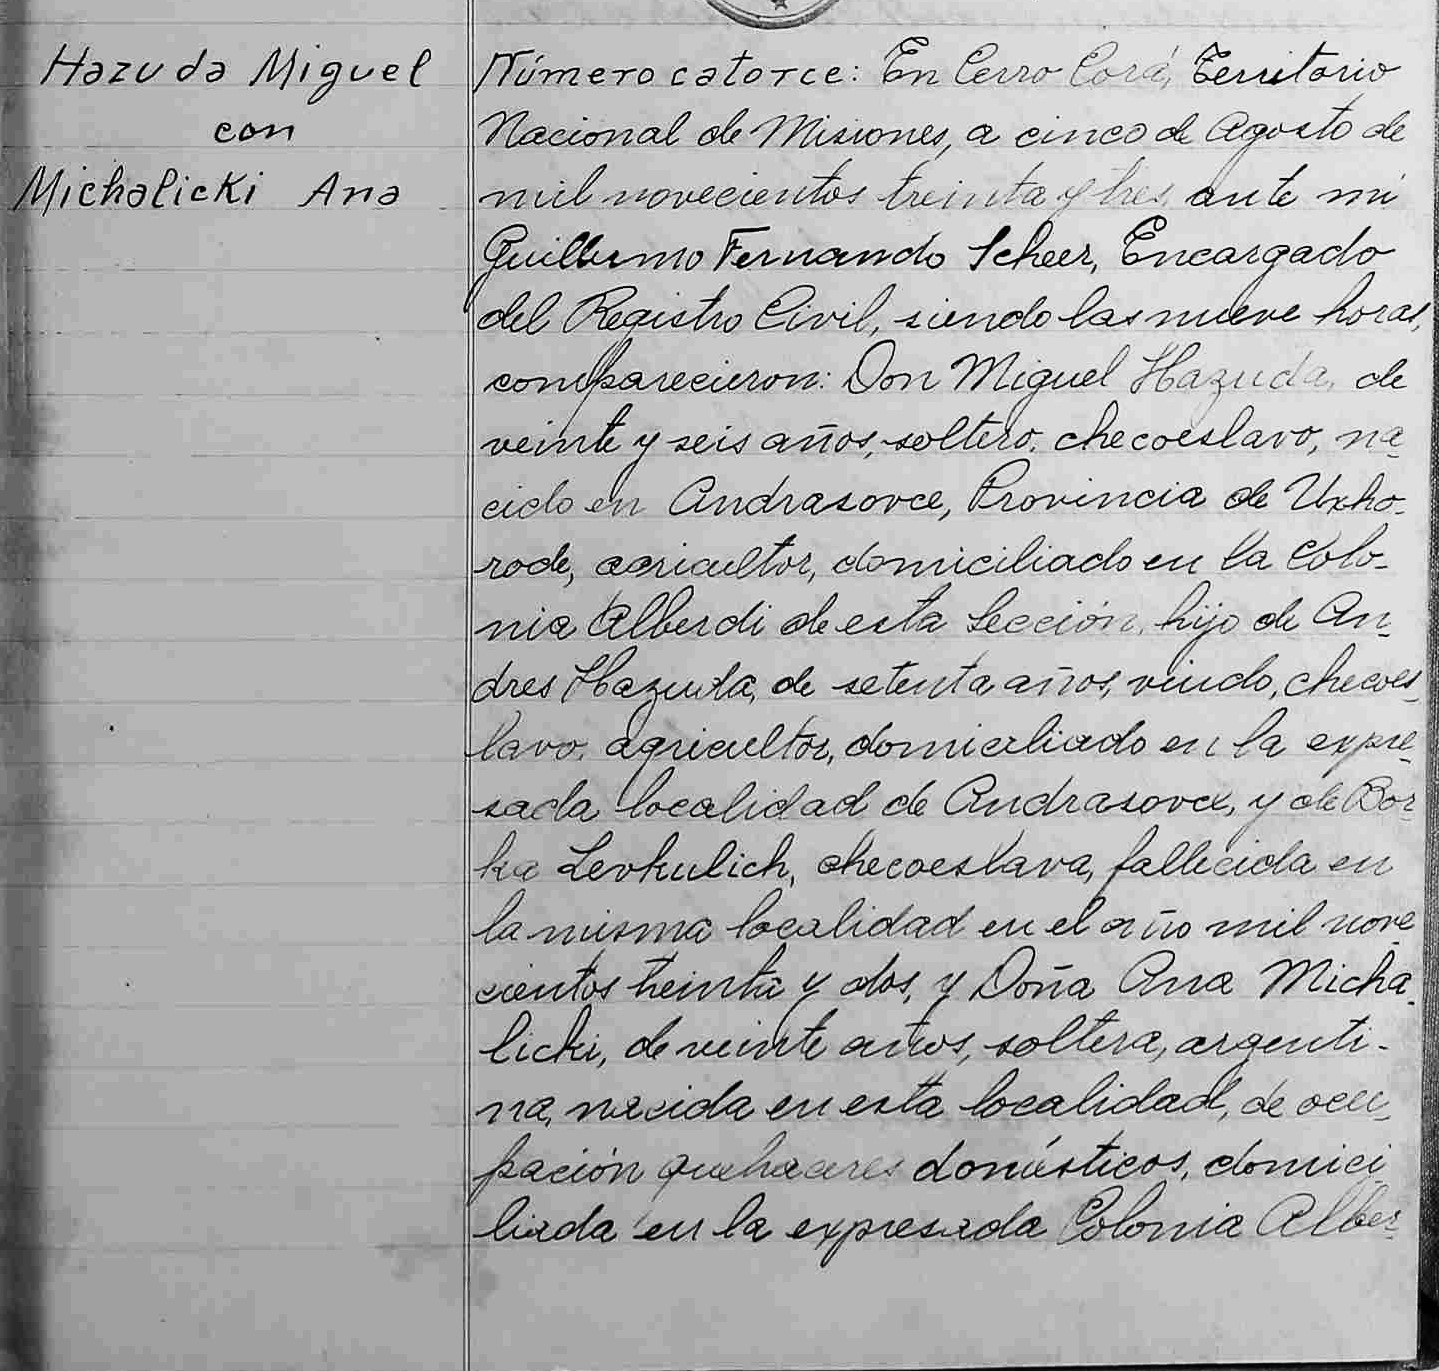 Hazuda Miguel
con
Michalicki Ana
Número catorce: En Cerro Corá, Territorio
Nacional de Misiones, a cinco de Agosto de
mil novecientos treinta y tres, ante mi
Guillermo Fernando Scheer, Encargado
del Registro Civil, siendo las nueve horas,
comparecieron: Don Miguel Hazuda, de
veinte y seis años, soltero, checoeslavo, na-
cido en Andrasovce, Provincia de Uxho-
rode, agricultor, domiciliado en la Colo-
nia Alberdi de esta Sección, hijo de An-
dres Hazuda, de setenta años, viudo, checoes-
lavo, agricultor, domiciliado en la expre-
sada localidad de Andrasovce, y de Bor-
ka Levkulich, checoeslava, fallecida en
la misma localidad en el año mil nove
cientos treinta y dos, y Doña Ana Micha-
licki, de veinte años, soltera, argenti-
na, nacida en esta localidad, de ocu-
pación quehaceres domésticos, domici-
liada en la expresada Colonia Alber-